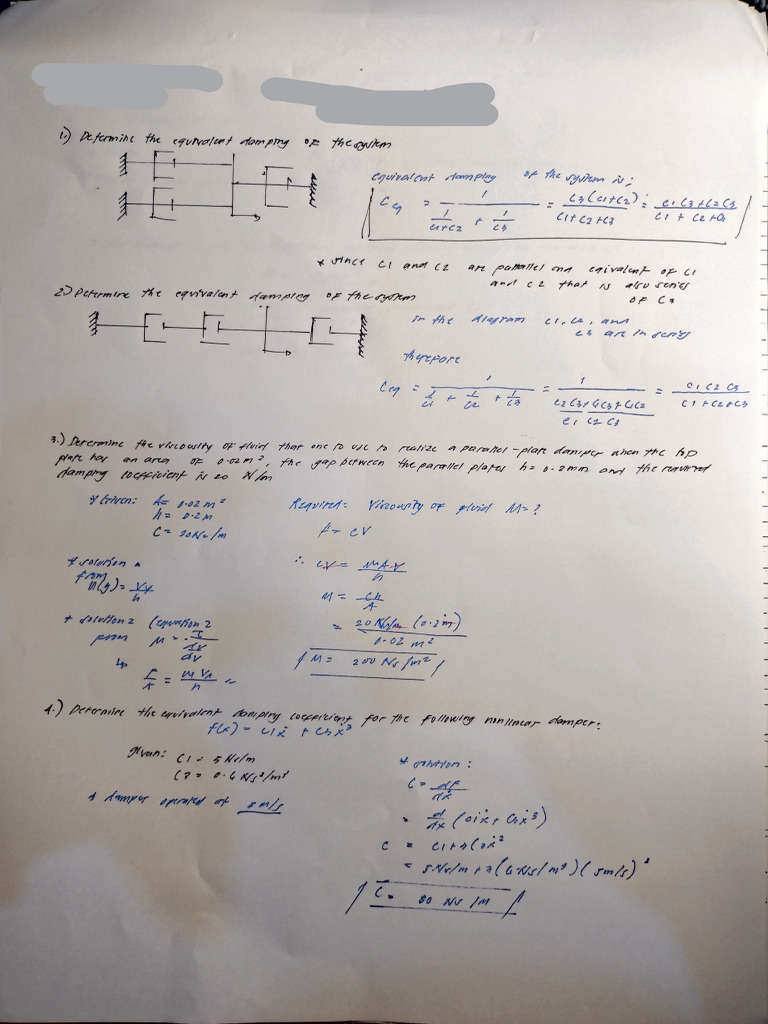 1.) Determine the equivalent damping of the system
equivalent damping of the system is;
Ceq = 1 / (1/(C1+C2) + 1/C3) = C3(C1+C2) / (C1+C2+C3) = (C1C3+C2C3) / (C1+C2+C3)
* since C1 and C2 are parallel and eqivalent of C1
and C2 that is also series
of C3
2.) Determine the equivalent damping of the system
in the diagram C1, C2, and
C3 are in series
therefore
Ceq = 1 / (1/C1 + 1/C2 + 1/C3) = 1 / ((C2C3+C1C3+C1C2) / (C1 C2 C3)) = C1 C2 C3 / (C1+C2+C3)
3.) Determine the viscosity of fluid that one to use to realize a parallel-plate damper when the top
plate has an area of 0.02m², the gap between the parallel plates h= 0.2mm and the required
damping coefficient is 20 N/m
* Given: A= 0.02 m²
h= 0.2 m
C= 20Ns/m
Required: Viscosity of fluid M= ?
F= CV
* solution
from
u(y)= Vy/h
∴ CV = MAV/h
M = Ch/A
* solution 2 (equation 2
from M = T / (du/dy)
↳ F/A = M V/h
= 20 Ns/m (0.2m) / 0.02 m²
M = 200 Ns/m²
4.) Determine the equivalent damping coefficient for the following nonlinear damper:
f(ẋ) = C1ẋ + C3ẋ³
Given: C1 = 5 Ns/m
C3 = 0.6 Ns³/m³
* damper operated at 5m/s
* solution:
C = dF/dẋ
= d/dẋ (C1ẋ + C3ẋ³)
C = C1+3C3ẋ²
= 5Ns/m + 3( Ns/m³)(5m/s)²
C = 80 Ns/m